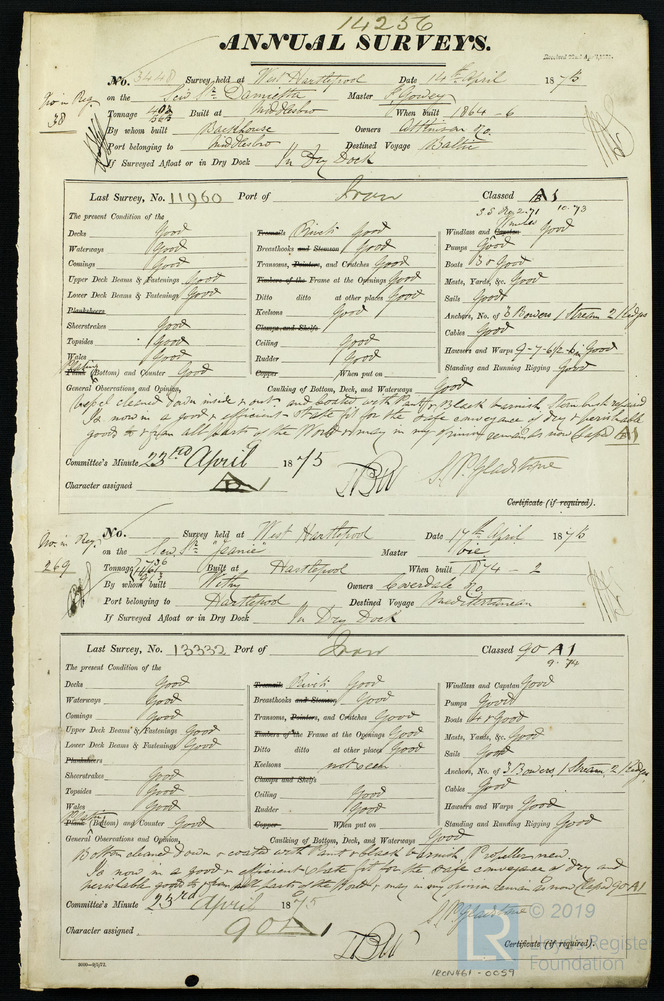 14256
ANNUAL SURVEYS.
No. 3448 Survey held at West Hartlepool Date 14th April 1875
No in Reg. 38
on the Scw Sr Damietta Master F Gowey
Tonnage 702 Built at Middlesbro When built 1864-6
By whom built Backhouse Owners Atkinson & Co.
Port belonging to Middlesbro Destined Voyage Baltic
If Surveyed Afloat or in Dry Dock In Dry Dock
Last Survey, No. 11960 Port of Iron Classed A1
S.S. No 2. 71 10.73
The present Condition of the
Decks Good Treenails Rivets Good Windlass and Capstan Good
Waterways Good Breasthooks and Stemson Good Pumps Good
Comings Good Transoms, Pointers, and Crutches Good Boats 3 & Good
Upper Deck Beams & Fastenings Good Timbers of the Frame at the Openings Good Masts, Yards, &c. Good
Lower Deck Beams & Fastenings Good Ditto ditto at other places Good Sails Good
Planksheers Keelsons Good Anchors, No. of 3 Bowers 1 Stream 2 Kedges
Sheerstrakes Good Clamps and Shelfs Cables Good
Topsides Good Ceiling Good Hawsers and Warps 9-7-6½-6 in Good
Wales Good Rudder Good Standing and Running Rigging Good
Plating
Plank (Bottom) and Counter Good Copper When put on
General Observations and Opinion, Caulking of Bottom, Deck, and Waterways Good
Vessel cleaned down inside & out and coated with Paint & Black varnish, Stern bush repaired
Is now in a good & efficient State fit for the safe conveyance of dry & perishable
goods to & from all parts of the World & may in my opinion remain as now Class A1
Committee's Minute 23rd April 1875
S. P. Gladstone
Character assigned A1
Certificate (if required).
No. Survey held at West Hartlepool Date 17th April 1875
No. in Reg. 269
on the Scw Sr "Jeanie" Master
Tonnage Built at Hartlepool When built 1874 - 2
By whom built Withy Owners Coverdale & Co.
Port belonging to Hartlepool Destined Voyage Mediterranean
If Surveyed Afloat or in Dry Dock In Dry Dock
Last Survey, No. 13332 Port of Iron Classed 90 A1
9. 74
The present Condition of the
Decks Good Treenails Rivets Good Windlass and Capstan Good
Waterways Good Breasthooks and Stemson Good Pumps Good
Comings Good Transoms, Pointers, and Crutches Good Boats 4 & Good
Upper Deck Beams & Fastenings Good Timbers of the Frame at the Openings Good Masts, Yards, &c. Good
Lower Deck Beams & Fastenings Good Ditto ditto at other places Good Sails Good
Planksheers Keelsons not seen Anchors, No. of 3 Bowers, 1 Stream 2 Kedges
Sheerstrakes Good Clamps and Shelfs Cables Good
Topsides Good Ceiling Good Hawsers and Warps Good
Wales Good Rudder Good Standing and Running Rigging Good
Plating
Plank (Bottom) and Counter Good Copper When put on
General Observations and Opinion, Caulking of Bottom, Deck, and Waterways Good
Bottom cleaned down & coated with Paint & black varnish, Propeller new
Is now in a good & efficient State fit for the safe conveyance of dry and
perishable goods to & from all parts of the World & may in my opinion remain as now Class 90 A1
Committee's Minute 23rd April 1875
S. P. Gladstone
Character assigned 90 A1
Certificate (if required).
© 2019
LR Lloyd's Register
Foundation
IRON461-0059